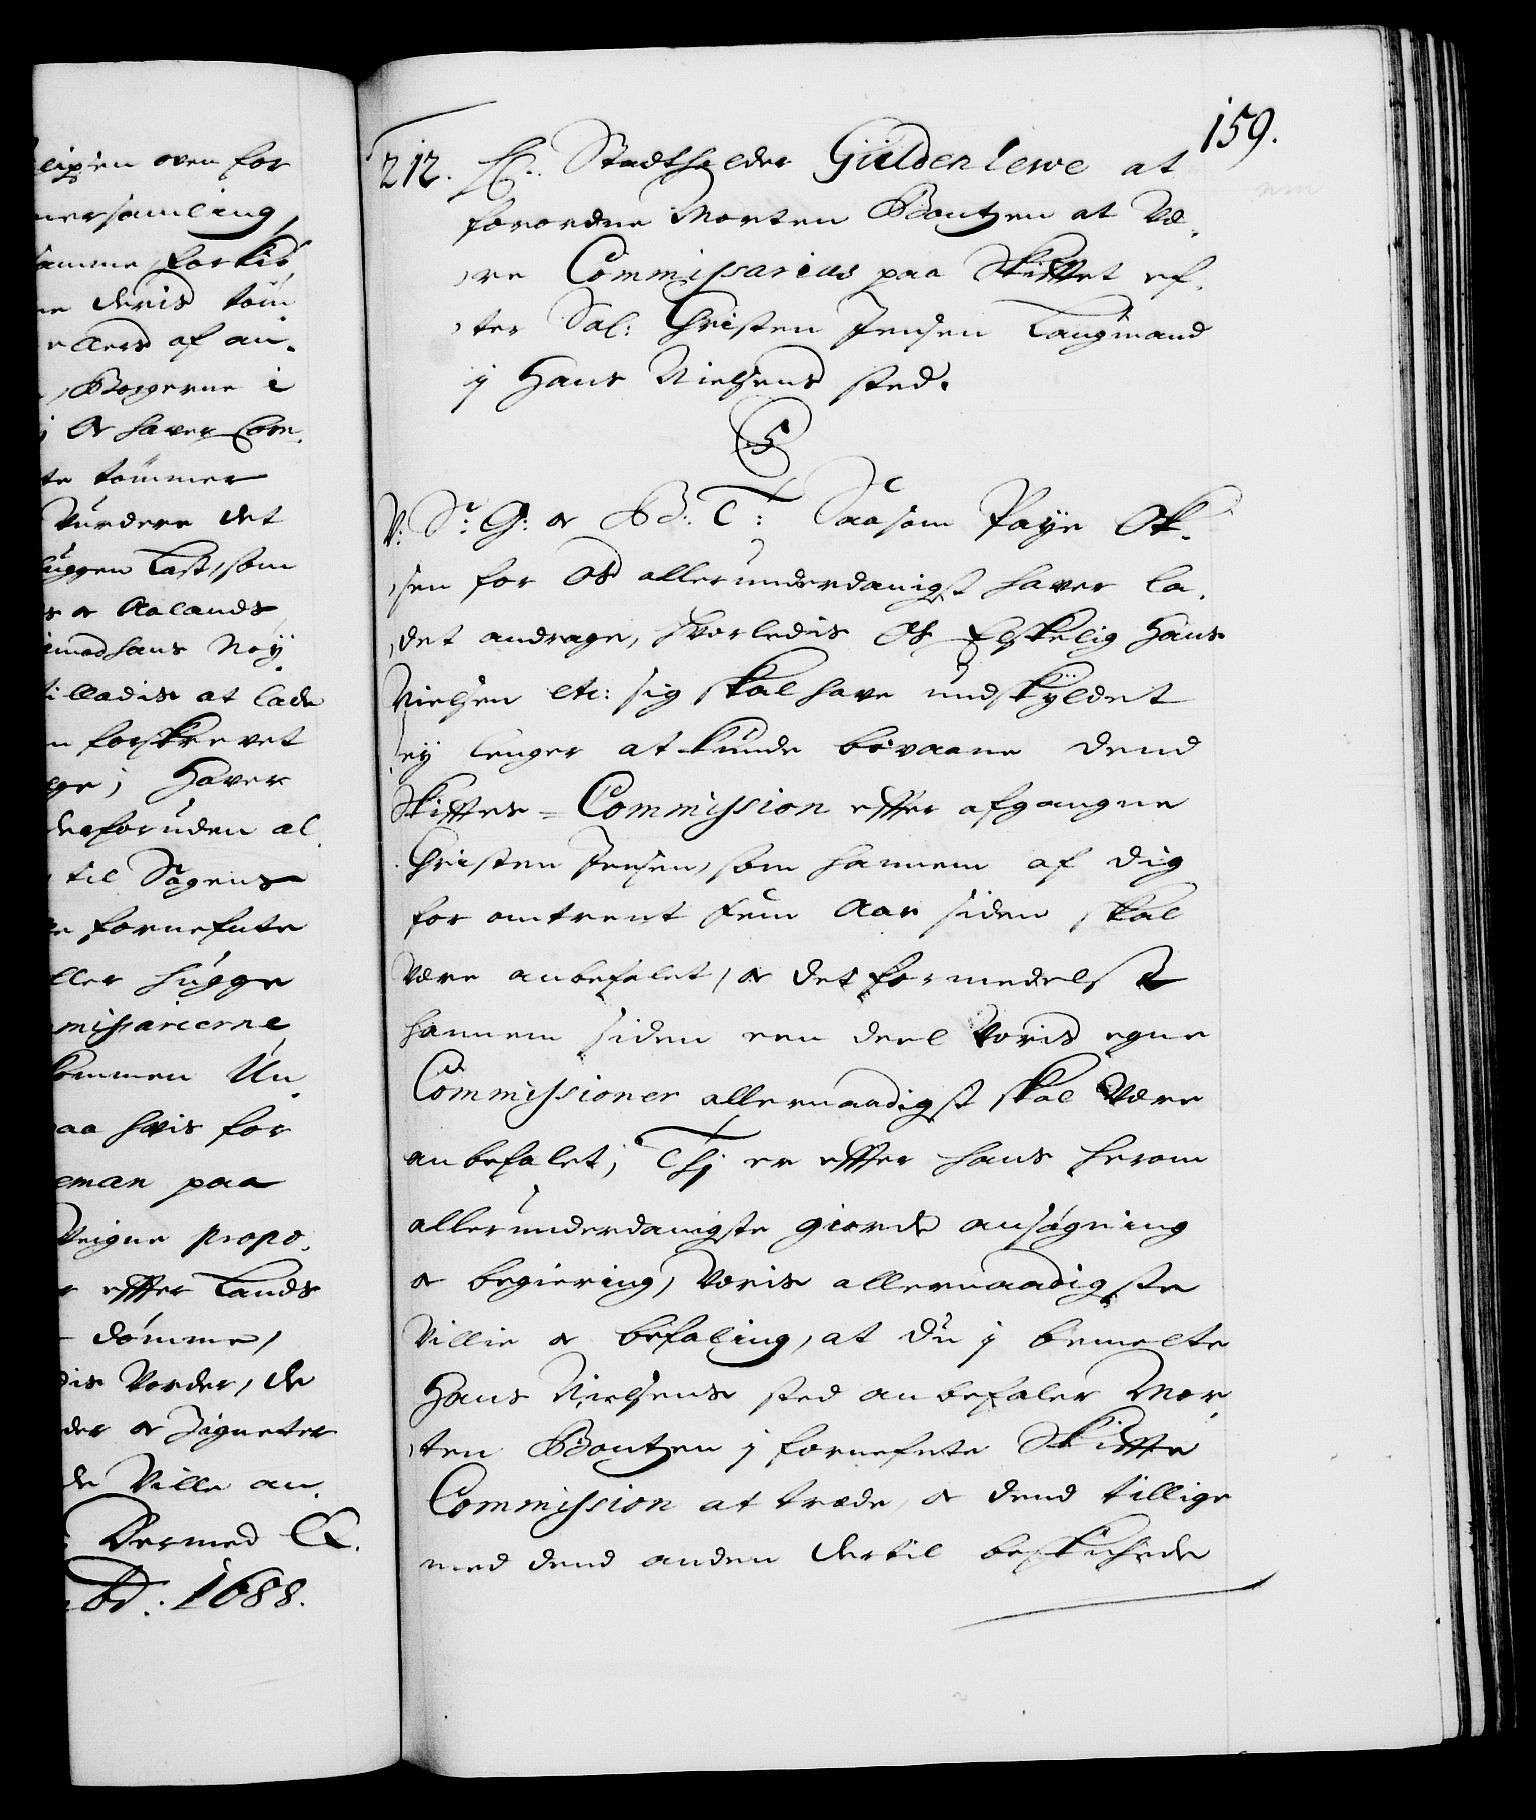 159.
212. H. Stadtholder Güldenlewe at
forordne Morten Bontzen at Væ,
,re Commissarius paa Skifftet ef,
,ter Sal: Christen Jensen Laugmand
j Hans Nielsens sted.
C5
V: Sr: G: oc B: T: Saasom Paye Ok,
,sen for Os allerunderdanigst haver la,
,det andrage, hvorledis Os Elskelig Hans
Nielsen etc: sig skal have undskÿldet
ej lenger at kunde bevaane dend
Skifftes = Commission effter afgangne
Christen Jensen, som hannem af dig
for omtrent fem Aar siden skal
være anbefalet, oc det formedelst
hannem siden een deel Voris egne
Commissioner allernaadigst skal være
anbefalet; Thj er effter hans herom
allerunderdanigste giorde ansøgning
oc begiering, Voris allernaadigste
Villie oc befaling, at du j bemelte
Hans Nielsens sted anbefaler Mor,
,ten Bontzen j fornefnte Skiffte
Commission at træde, oc dend tillige
med dend anden dertil beskichede
en oven for
samme forkib,
deris töm
af an,
Borgerne i
haver
te tømmer
Vurdere det
huggen Last, som
oc Aalands
imod hans Nøy,
tilladis at lade
forskrevet
Haver
derforuden al,
til Sagens
fornefnte
eller hugge
missarierne
kommen Un,
paa hvis for
paa
Veigne propo,
effter Lands
dömme,
Vorder, de
oc Signeter
de Ville an,
Dermed &.
1688.